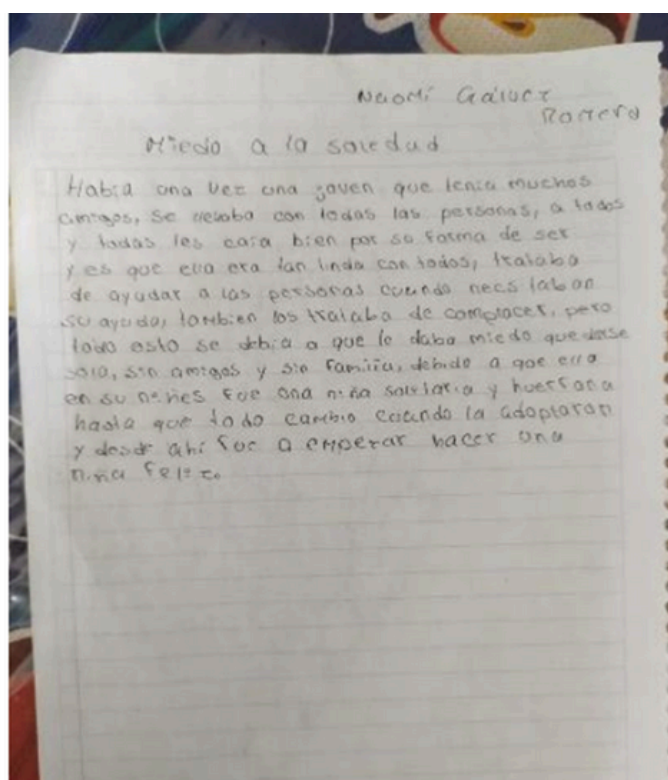 Naomí Gálvez
Romero
Miedo a la soledad
Habia una vez una joven que tenia muchos
amigos, se llevaba con todas las personas, a todos
y todas les caia bien por su forma de ser
y es que ella era tan linda con todos, trataba
de ayudar a las personas cuando necs taban
su ayuda, tambien los trataba de complacer, pero
todo esto se debia a que le daba miedo quedarse
sola, sin amigos y sin familia, debido a que ella
en su niñes fue una niña solitaria y huerfana
hasta que todo cambio cuando la adoptaron
y desde ahi fue a empezar hacer una
niña feliz.